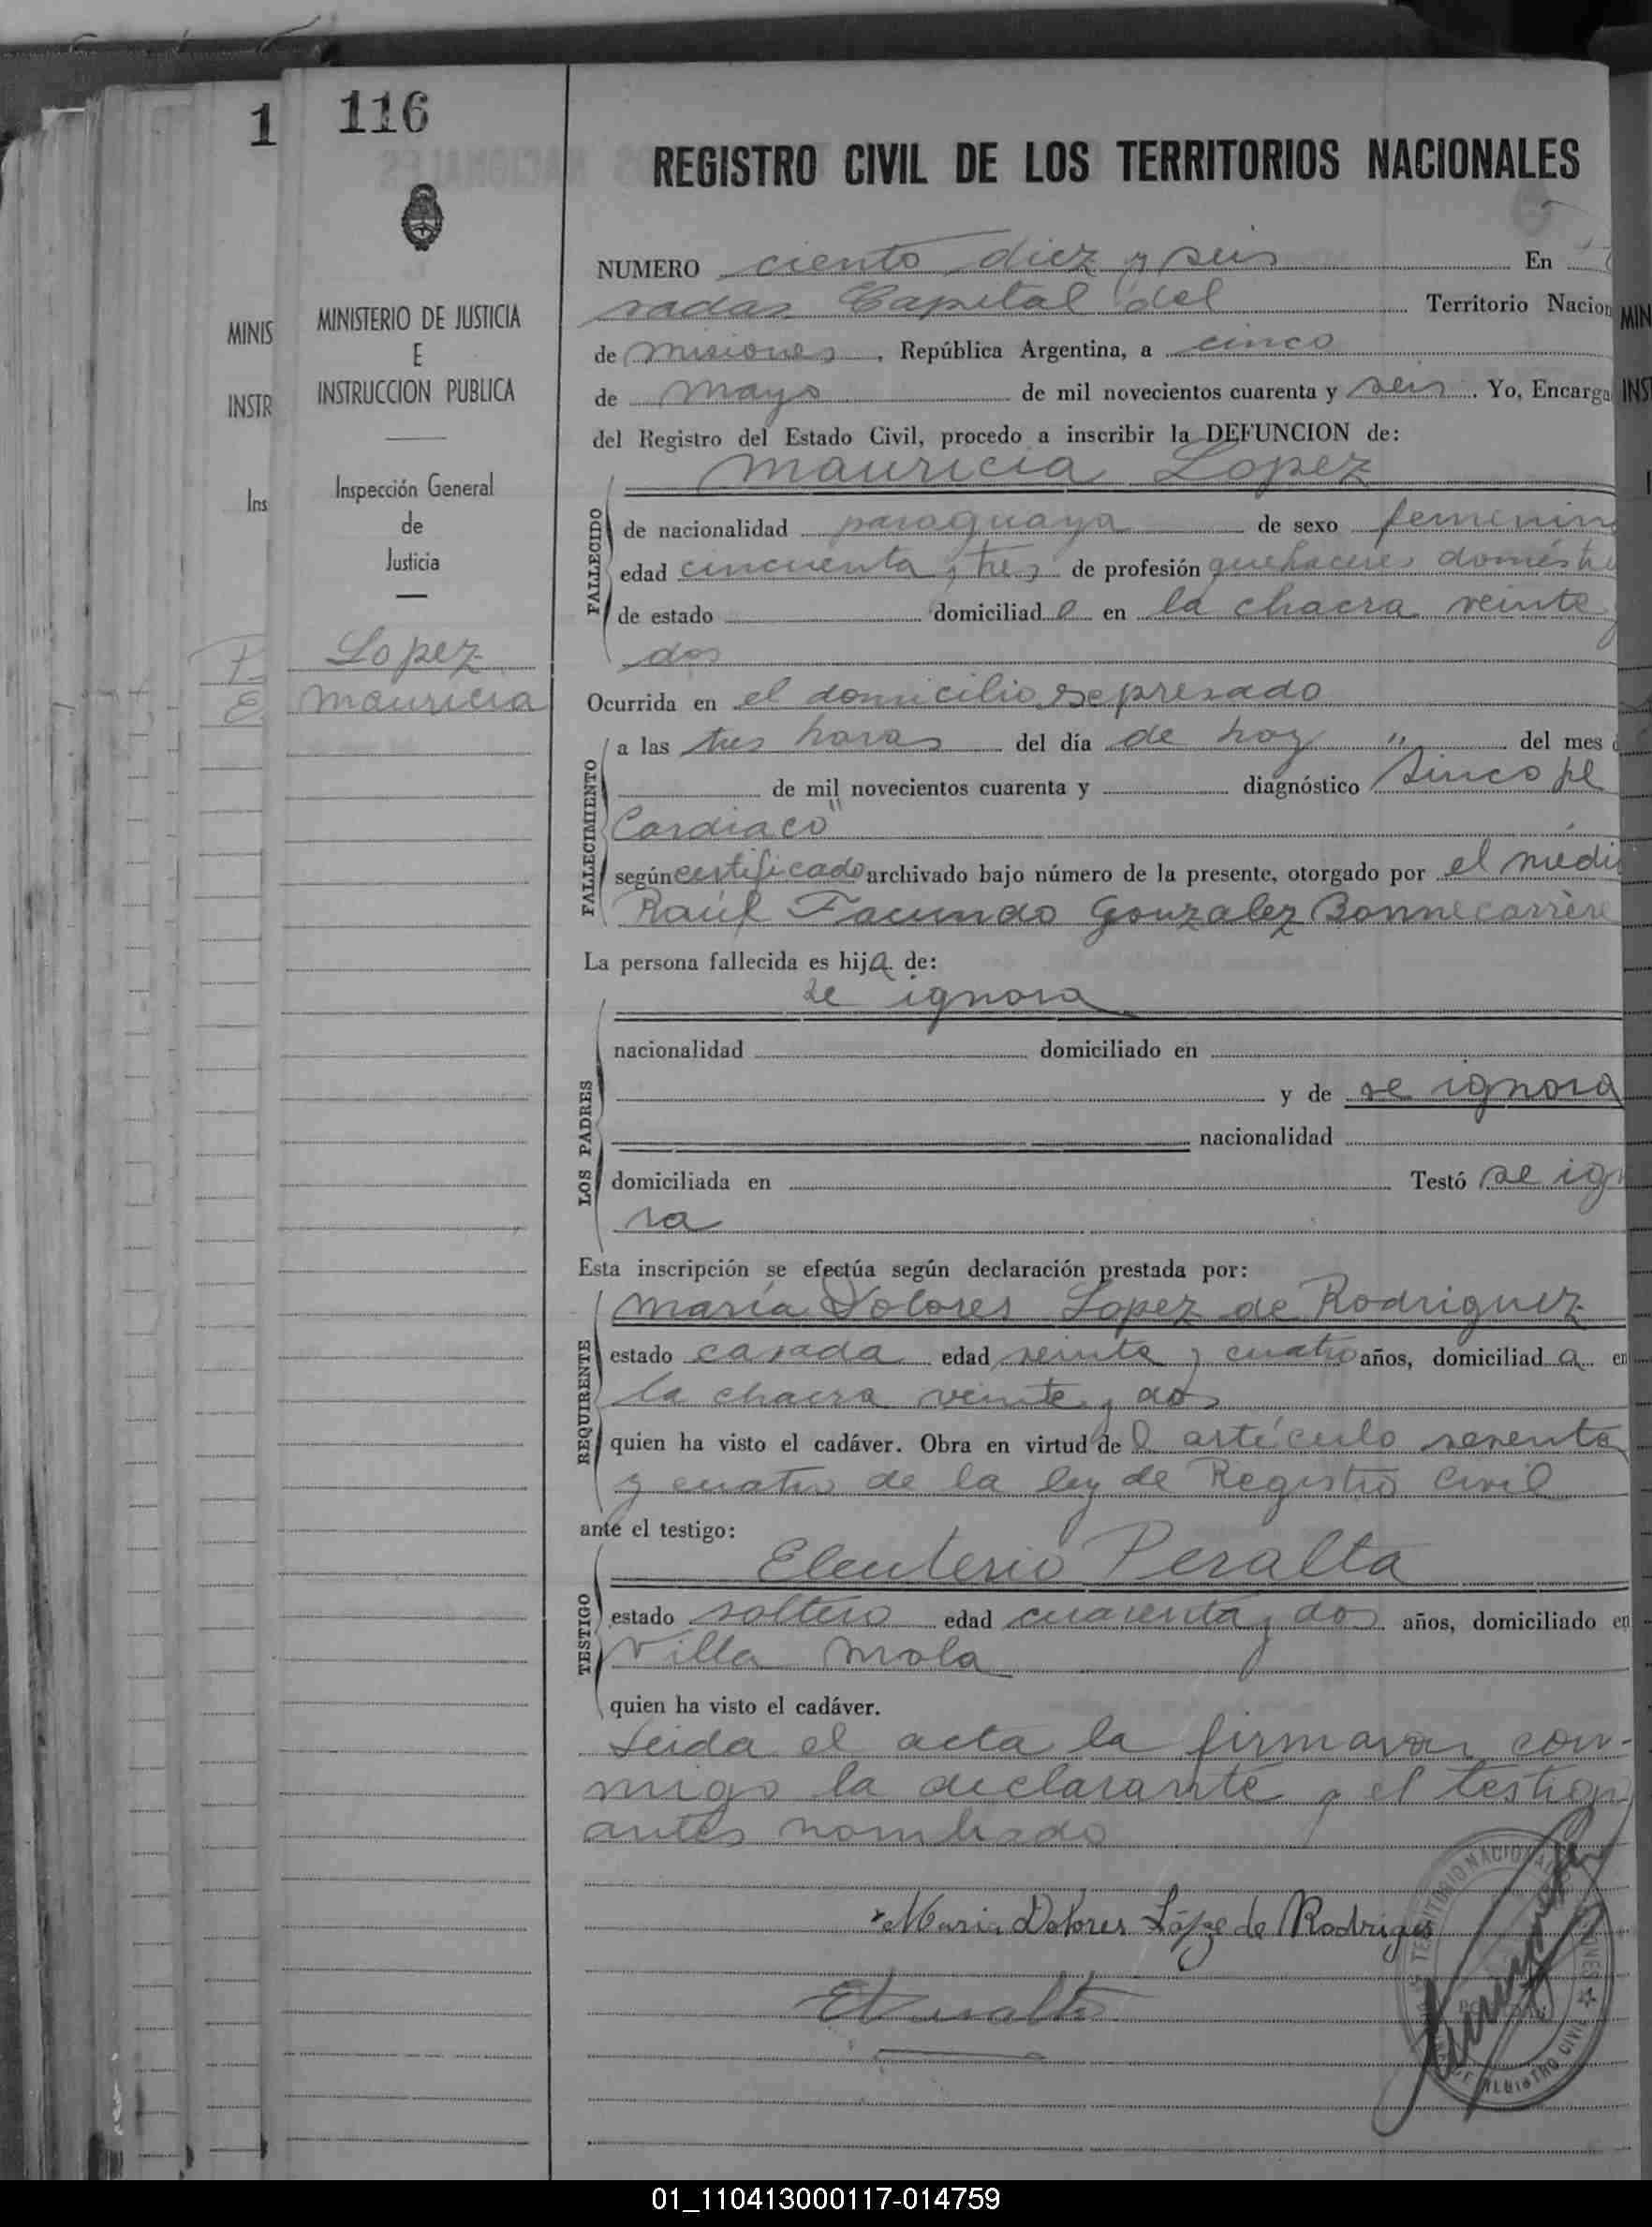 1
116
REGISTRO CIVIL DE LOS TERRITORIOS NACIONALES
MINIS
INSTR
Ins
MINISTERIO DE JUSTICIA
E
INSTRUCCION PUBLICA
Inspección General
de
Justicia
Lopez
Mauricia
NUMERO ciento diez y seis En
sadas Capital del Territorio Nacion
de Misiones, República Argentina, a cinco
de Mayo de mil novecientos cuarenta y seis. Yo, Encarga
del Registro del Estado Civil, procedo a inscribir la DEFUNCION de:
Mauricia Lopez
FALLECIDO
de nacionalidad paraguaya de sexo femenin
edad cincuenta y tres de profesión quehaceres domésti
de estado domiciliad a en la chacra veinte y
dos
Ocurrida en el domicilio expresado
FALLECIMIENTO
a las tres horas del día de hoy " del mes
de mil novecientos cuarenta y diagnóstico "Sincope
Cardiaco"
según certificado archivado bajo número de la presente, otorgado por el médi
Raúl Facundo Gonzalez Bonnecarrère
La persona fallecida es hija de:
LOS PADRES
se ignora
nacionalidad domiciliado en
y de se ignora
nacionalidad
domiciliada en Testó se igno
ra
Esta inscripción se efectúa según declaración prestada por:
REQUIRENTE
María Dolores Lopez de Rodriguez
estado casada edad veinte y cuatro años, domiciliad a en
la chacra veinte y dos
quien ha visto el cadáver. Obra en virtud del artículo sesenta
y cuatro de la ley de Registro Civil
ante el testigo:
TESTIGO
Eleuterio Peralta
estado soltero edad cuarenta y dos años, domiciliado en
Villa Mola
quien ha visto el cadáver.
Leida el acta la firmaron con-
migo la declarante y el testigo
antes nombrado
Maria Dolores Lópze de Rodrigues
EPeralta
TERRITORIO NACIONAL
REGISTRO CIVIL
MIN
INST
01_110413000117-014759